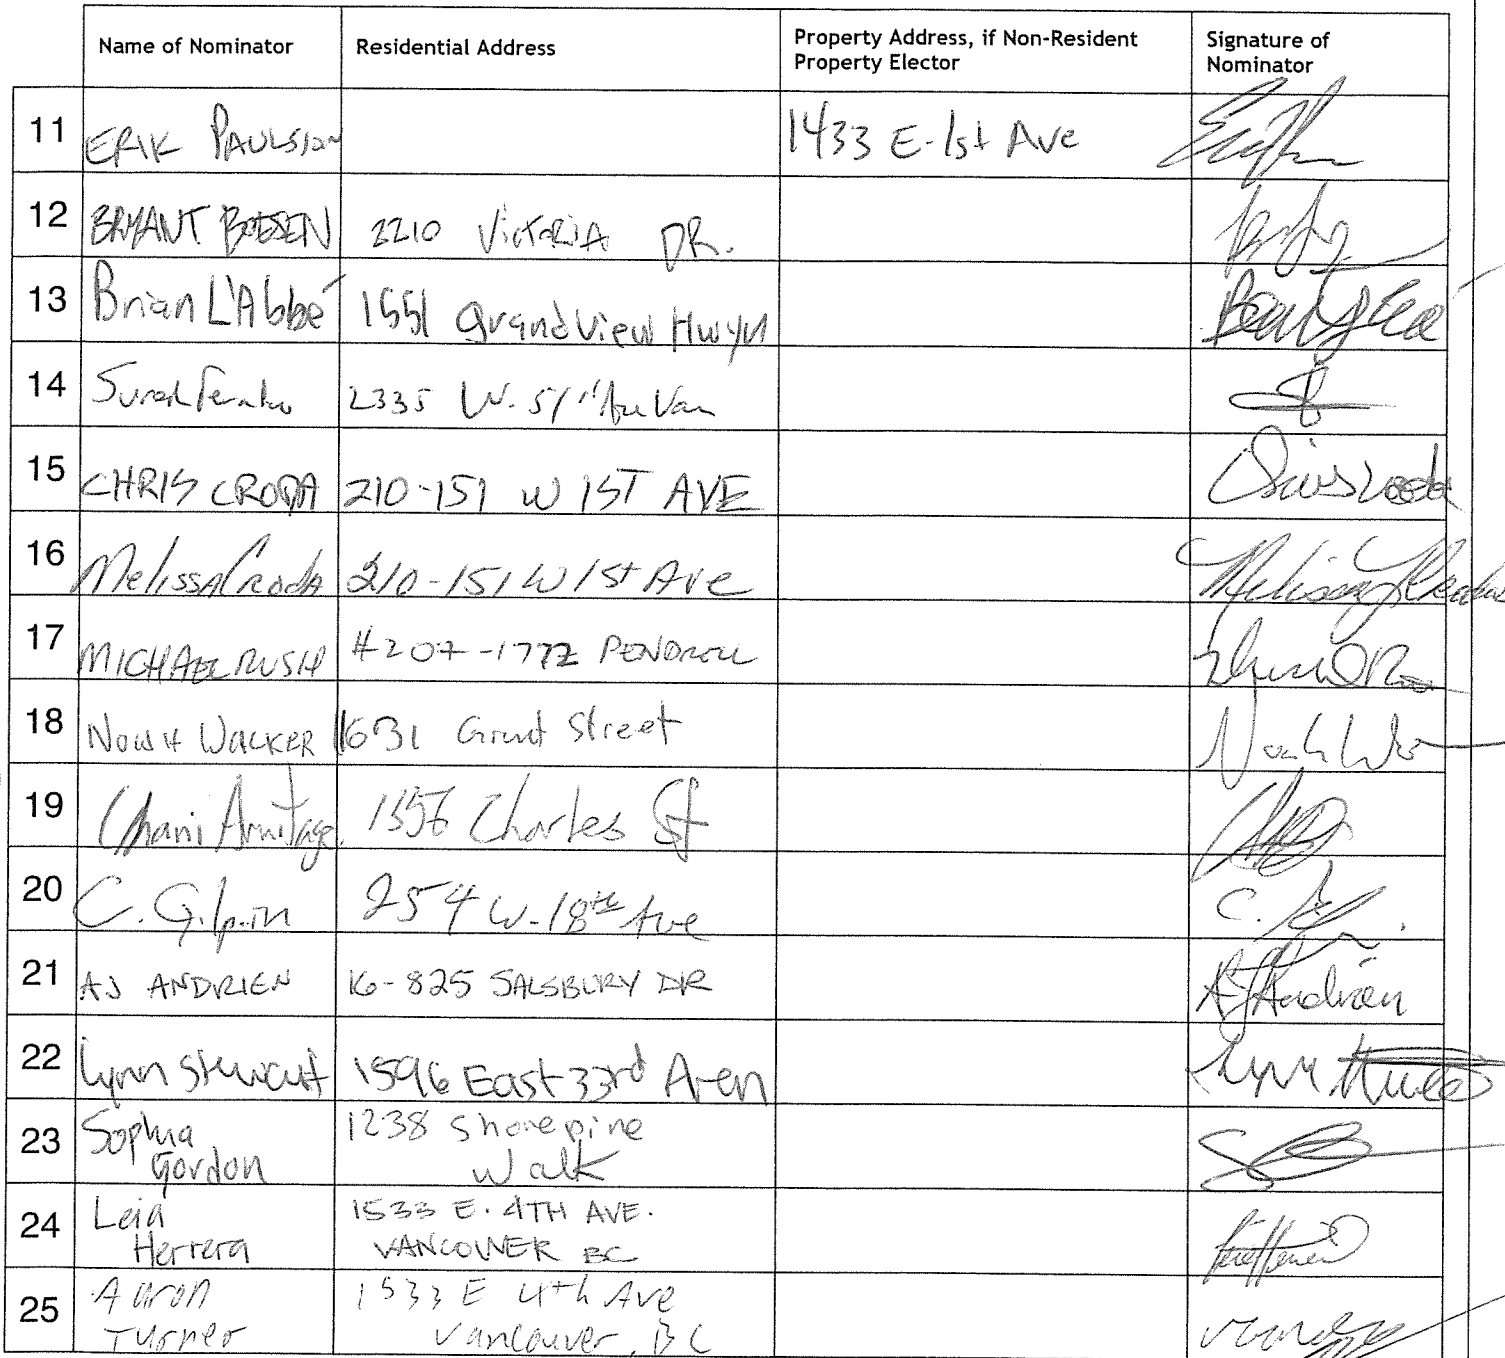 Name of Nominator Residential Address Property Address, if Non-Resident Property Elector Signature of Nominator
11 ERIK PAULSSON 1433 E-1st Ave
12 BRYANT BOESEN 2210 VICTORIA DR.
13 Brian L'Abbé 1551 grandview Hwy N
14 2335 W. Ave Van
15 CHRIS CRODA 210-151 W 1ST AVE
16 Melissa Croda 210-151 W 1st Ave
17 MICHAEL RUSH #207-1772 PENDRELL
18 WALKER 1631 Grant Street
19 Chani Armitage Charles St
20 C. Gilpin 254 W-18th Ave C.
21 AJ ANDRIEN 16-825 SALSBURY DR AJ Andrien
22 Lynn Stewart 1596 East 33rd Aven Lynn
23 Sophia 1238 Shorepine
Gordon Walk
24 Leia 1533 E. 4TH AVE.
Herrera VANCOUVER BC
25 Aaron 1533 E 4th Ave
Turner Vancouver, BC